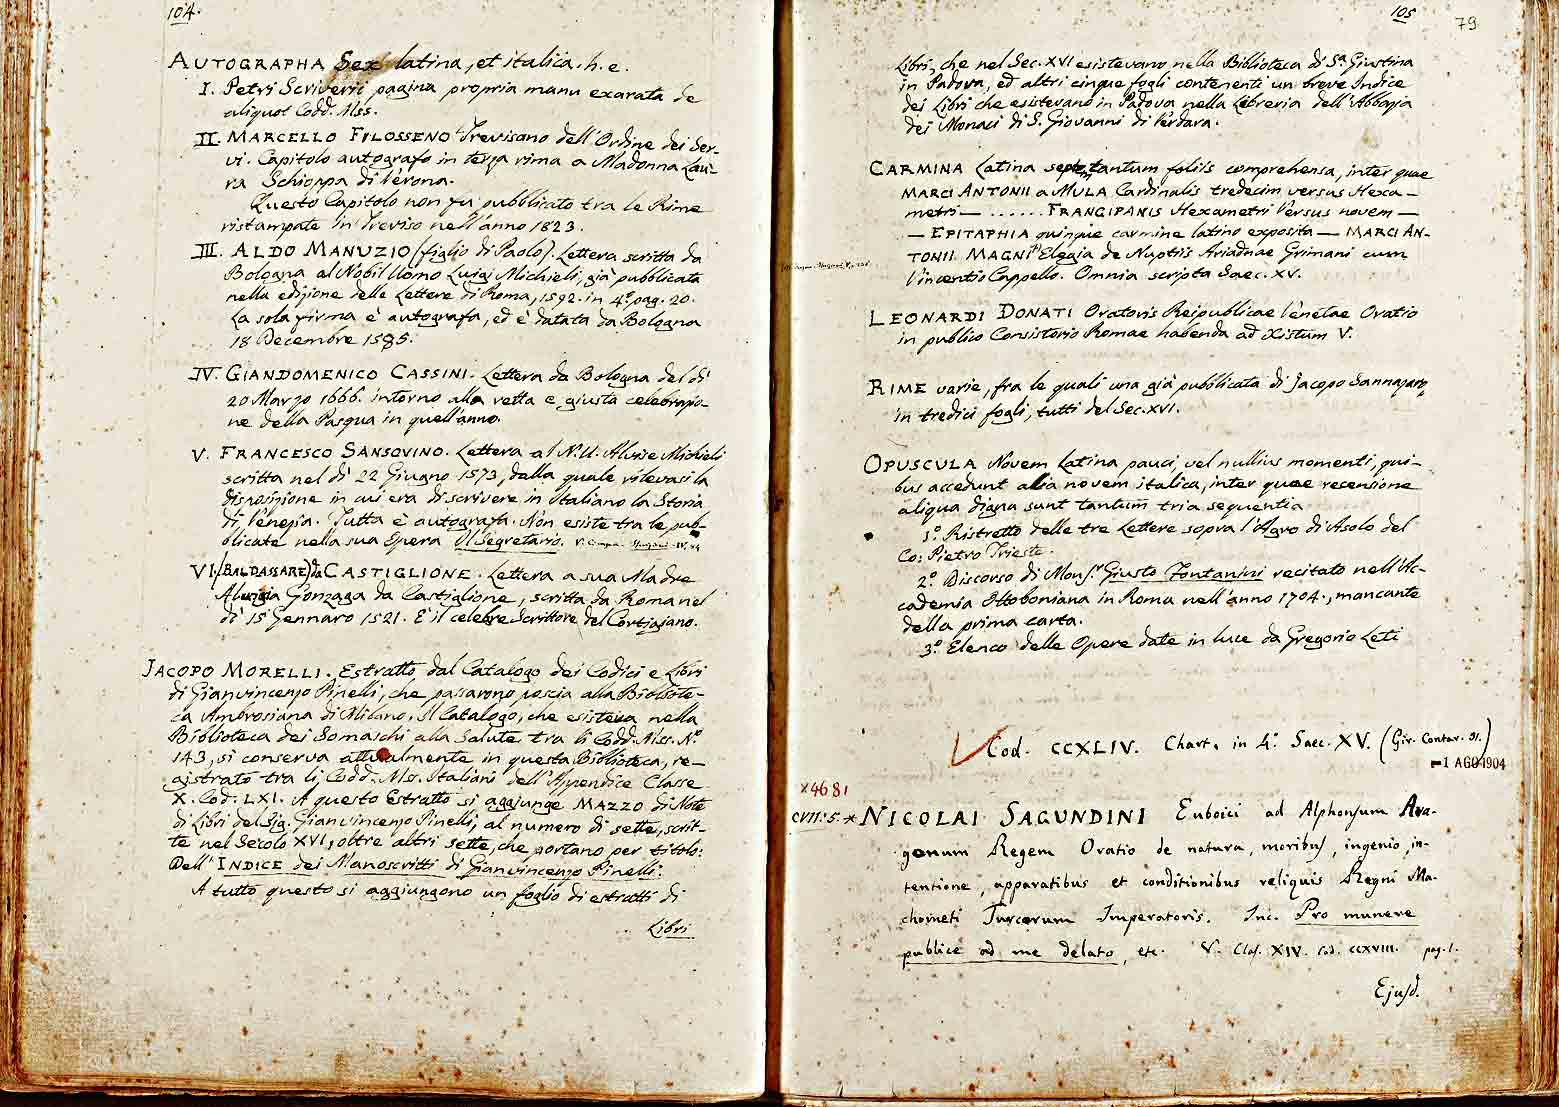 104.
AUTOGRAPHA Sex latina, et italica. h. e.
I. Petri Scriverii pagina propria manu exarata de
aliquot Codd. Mss.
II. MARCELLO FILOSSENO Trevisano dell'Ordine dei Ser-
vi. Capitolo autografo in terza rima a Madonna Lau-
ra Schioppa di Verona.
Questo Capitolo non fu pubblicato tra le Rime
ristampate in Treviso nell'anno 1823.
III. ALDO MANUZIO (figlio di Paolo). Lettera scritta da
Bologna al Nobil Uomo Luigi Michieli, già pubblicata
nella edizione delle Lettere di Roma, 1592. in 4.º pag. 20.
La sola firma è autografa, ed è datata da Bologna
18 Decembre 1585.
IV. GIANDOMENICO CASSINI. Lettera da Bologna del dì
20 Marzo 1666. intorno alla retta e giusta celebrazio-
ne della Pasqua in quell'anno.
V. FRANCESCO SANSOVINO. Lettera al N. U. Alvise Michieli
scritta nel dì 22 Giugno 1573, dalla quale rilevasi la
disposizione in cui era di scrivere in Italiano la Storia
di Venezia. Tutta è autografa. Non esiste tra le pub-
blicate nella sua Opera Il Segretario.
VI. (BALDASSARE) da CASTIGLIONE. Lettera a sua Madre
Aluigia Gonzaga da Castiglione, scritta da Roma nel
dì 15 Gennaro 1521. È il celebre Scrittore del Cortigiano.
JACOPO MORELLI. Estratto dal Catalogo dei Codici e Libri
di Gianvincenzo Pinelli, che passarono poscia alla Bibliote-
ca Ambrosiana di Milano. Il Catalogo, che esisteva nella
Biblioteca dei Somaschi alla Salute tra li Codd. Mss. N.º
143, si conserva attualmente in questa Biblioteca, re-
gistrato tra li Codd. Mss. Italiani dell'Appendice Classe
X. Cod. LXI. A questo Estratto si aggiunge MAZZO di Note
di Libri del Sig. Gianvincenzo Pinelli, al numero di sette, scrit-
te nel Secolo XVI, oltre altri sette, che portano per titolo:
Dell'INDICE dei Manoscritti di Gianvincenzo Pinelli.
A tutto questo si aggiungono un foglio di estratti di
Libri
105
79
Libri, che nel Sec. XVI esistevano nella Biblioteca di Sª Giustina
in Padova, ed altri cinque fogli contenenti un breve Indice
dei Libri che esistevano in Padova nella Libreria dell'Abbazia
dei Monaci di S. Giovanni di Verdara.
CARMINA Latina septem tantum foliis comprehensa, inter quae
MARCI ANTONII a MULA Cardinalis tredecim versus Hexa-
metri — ...... FRANGIPANIS Hexametri Versus novem —
— EPITAPHIA quinque carmine latino exposita — MARCI AN-
TONII MAGNI Elegia de Nuptiis Ariadnae Grimani cum
Vincentio Cappello. Omnia scripta Saec. XV.
LEONARDI DONATI Oratoris Reipublicae Venetae Oratio
in publico Consistorio Romae habenda ad Xistum V.
RIME varie, fra le quali una già pubblicata di Jacopo Sannazaro,
in tredici fogli, tutti del Sec. XVI.
OPUSCULA Novem Latina pauci, vel nullius momenti, qui-
bus accedunt alia novem italica, inter quae recensione
aliqua digna sunt tantum tria sequentia
1.º Ristretto delle tre Lettere sopra l'Agro di Asolo del
Co: Pietro Trieste.
2.º Discorso di Mons.r Giusto Fontanini recitato nell'Ac-
cademia Ottoboniana in Roma nell'anno 1704., mancante
della prima carta.
3.º Elenco delle Opere date in luce da Gregorio Leti
Cod. CCXLIV. Chart. in 4.º Saec. XV. (Gir. Contar. 31.)
-1 AGO 1904
×4681
CVII:5. * NICOLAI SAGUNDINI Euboici ad Alphonsum Ara-
gonum Regem Oratio de natura, moribus, ingenio, in-
tentione, apparatibus et conditionibus reliquis Regni Ma-
chometi Turcarum Imperatoris. Inc. Pro munere
publice ad me delato, etc. V. Clas. XIV. Cod. CCXVIII. pag. 1.
Ejusd.